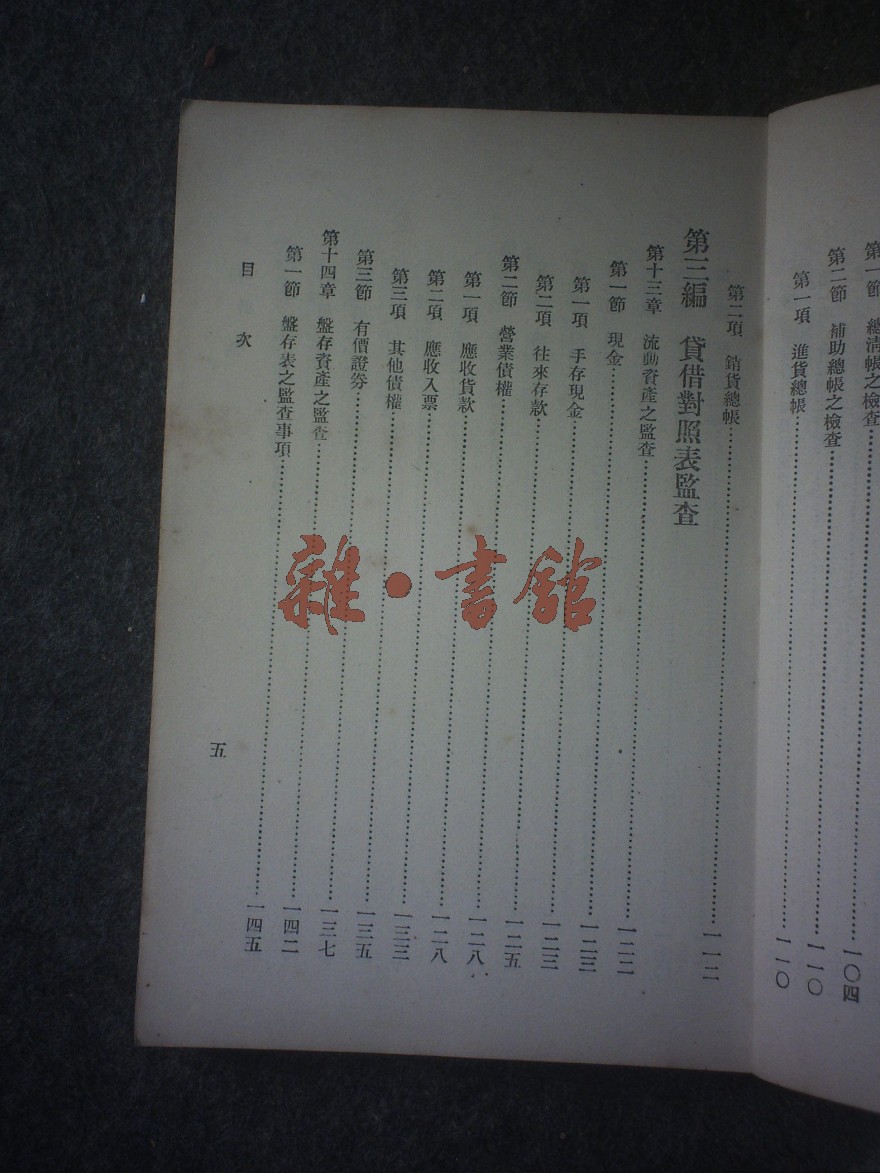 第一節 總清帳之檢查……一〇四
第二節 補助總帳之檢查……一一〇
第一項 進貨總帳……一一〇
第二項 銷貨總帳……一一二
第三編 貸借對照表監查
第十三章 流動資產之監查……一二二
第一節 現金……一二三
第一項 手存現金……一二三
第二項 往來存款……一二五
第二節 營業債權……一二八
第一項 應收貨款……一二八
第二項 應收入票……一三三
第三項 其他債權……一三五
第三節 有價證券……一三七
第十四章 盤存資產之監查……一四二
第一節 盤存表之監查事項……一四五
目次
五
雜·書館